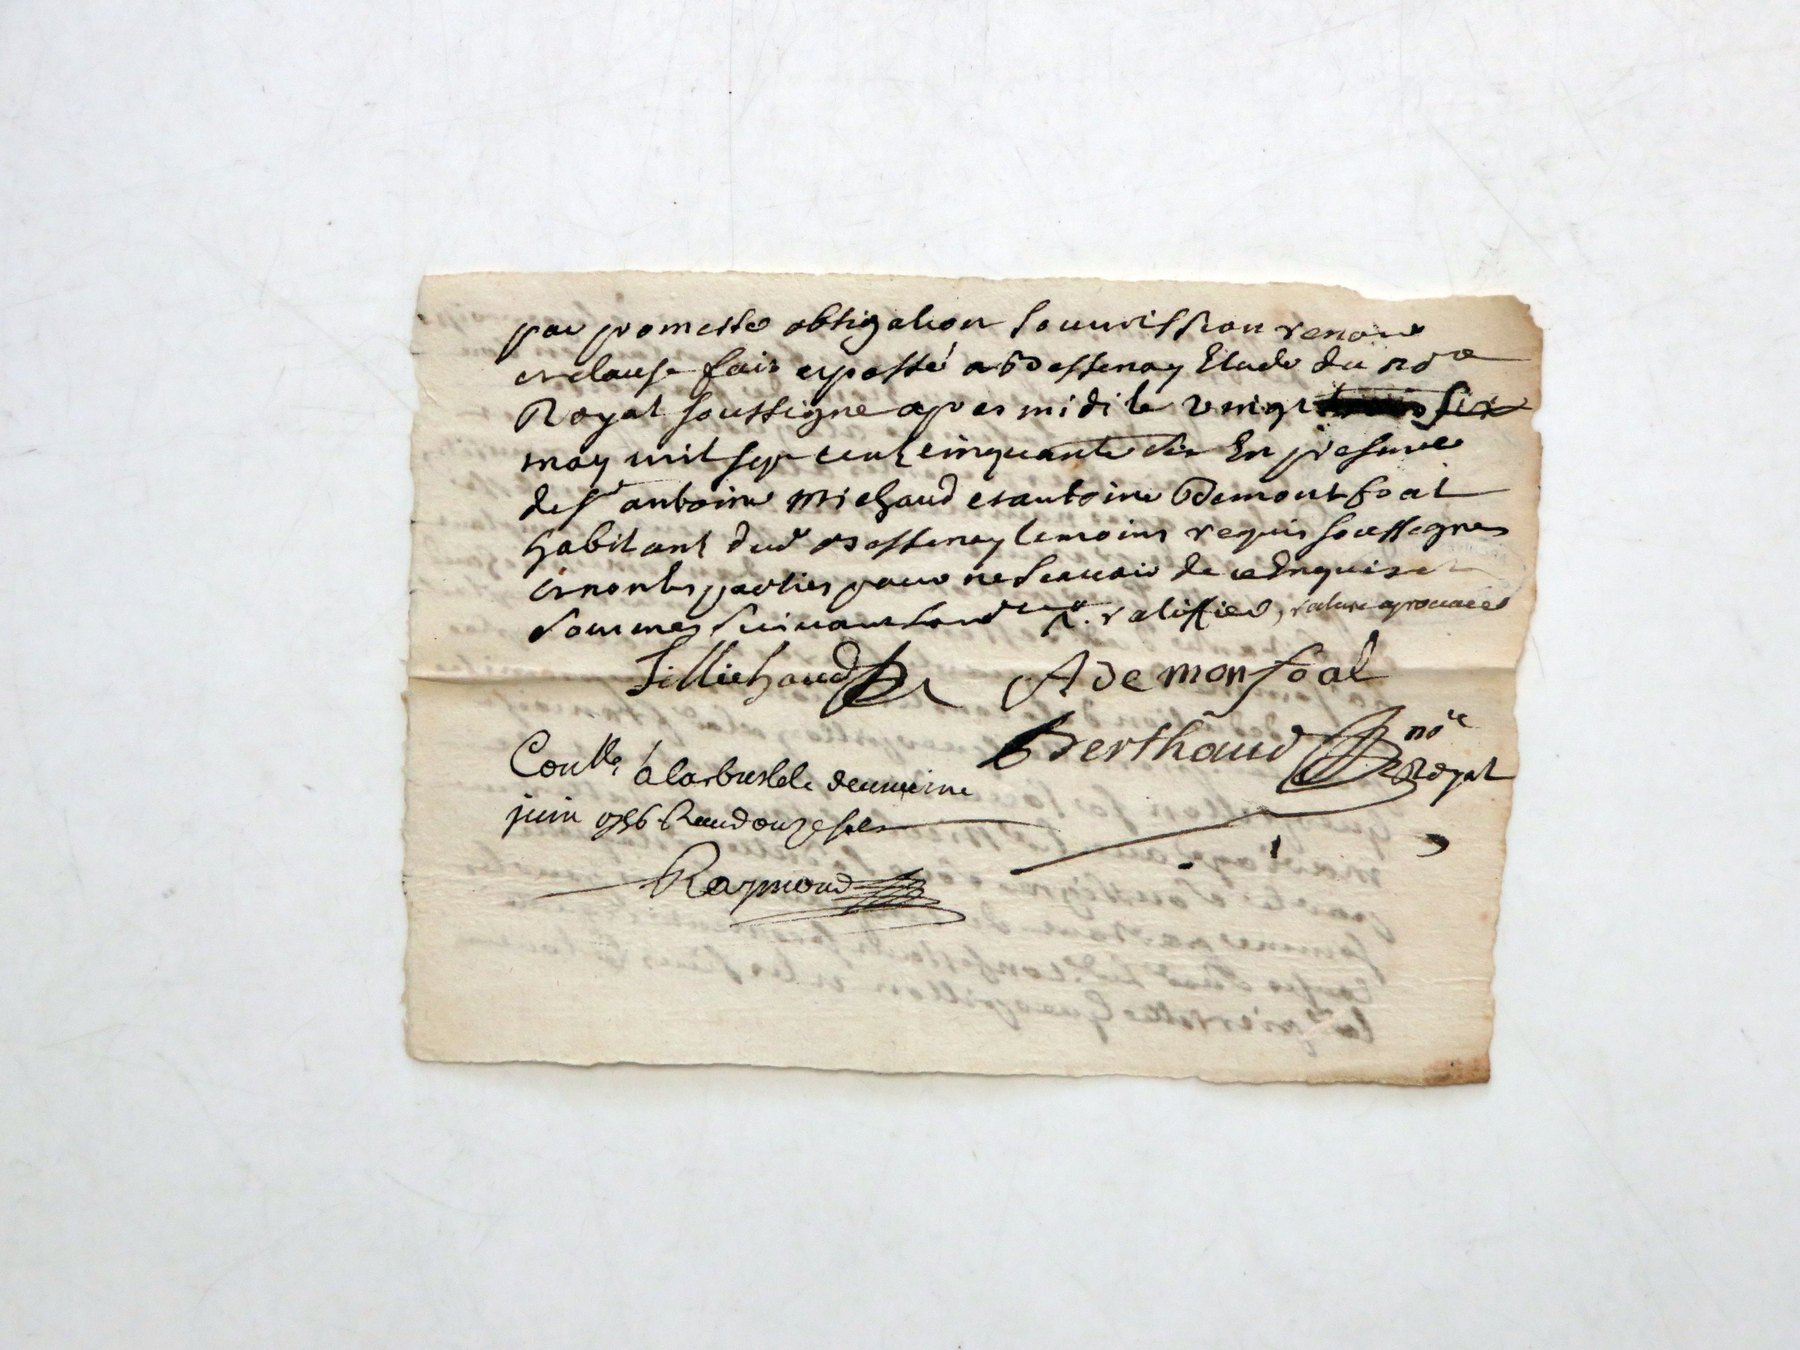 par promesse obligation soumission renon
et clause fait et passé a Bessenay Etude du no.re
Royal soussigne apres midi le vingt six
may mil sept cent cinquante six En presence
de S.r antoine Michaud et antoine Demontfoal
habitant dud Bessenay temoins requis soussignes
et non les parties pour ne scavoir de ce Enquises et
sommes suivant ratiffier, rature aprouvée
Michaud A De monfoal
Berthaud no.re
Royal
Con.lle a larbresle le deuxieme
juin 1756 Reçu douze sols
Raymond